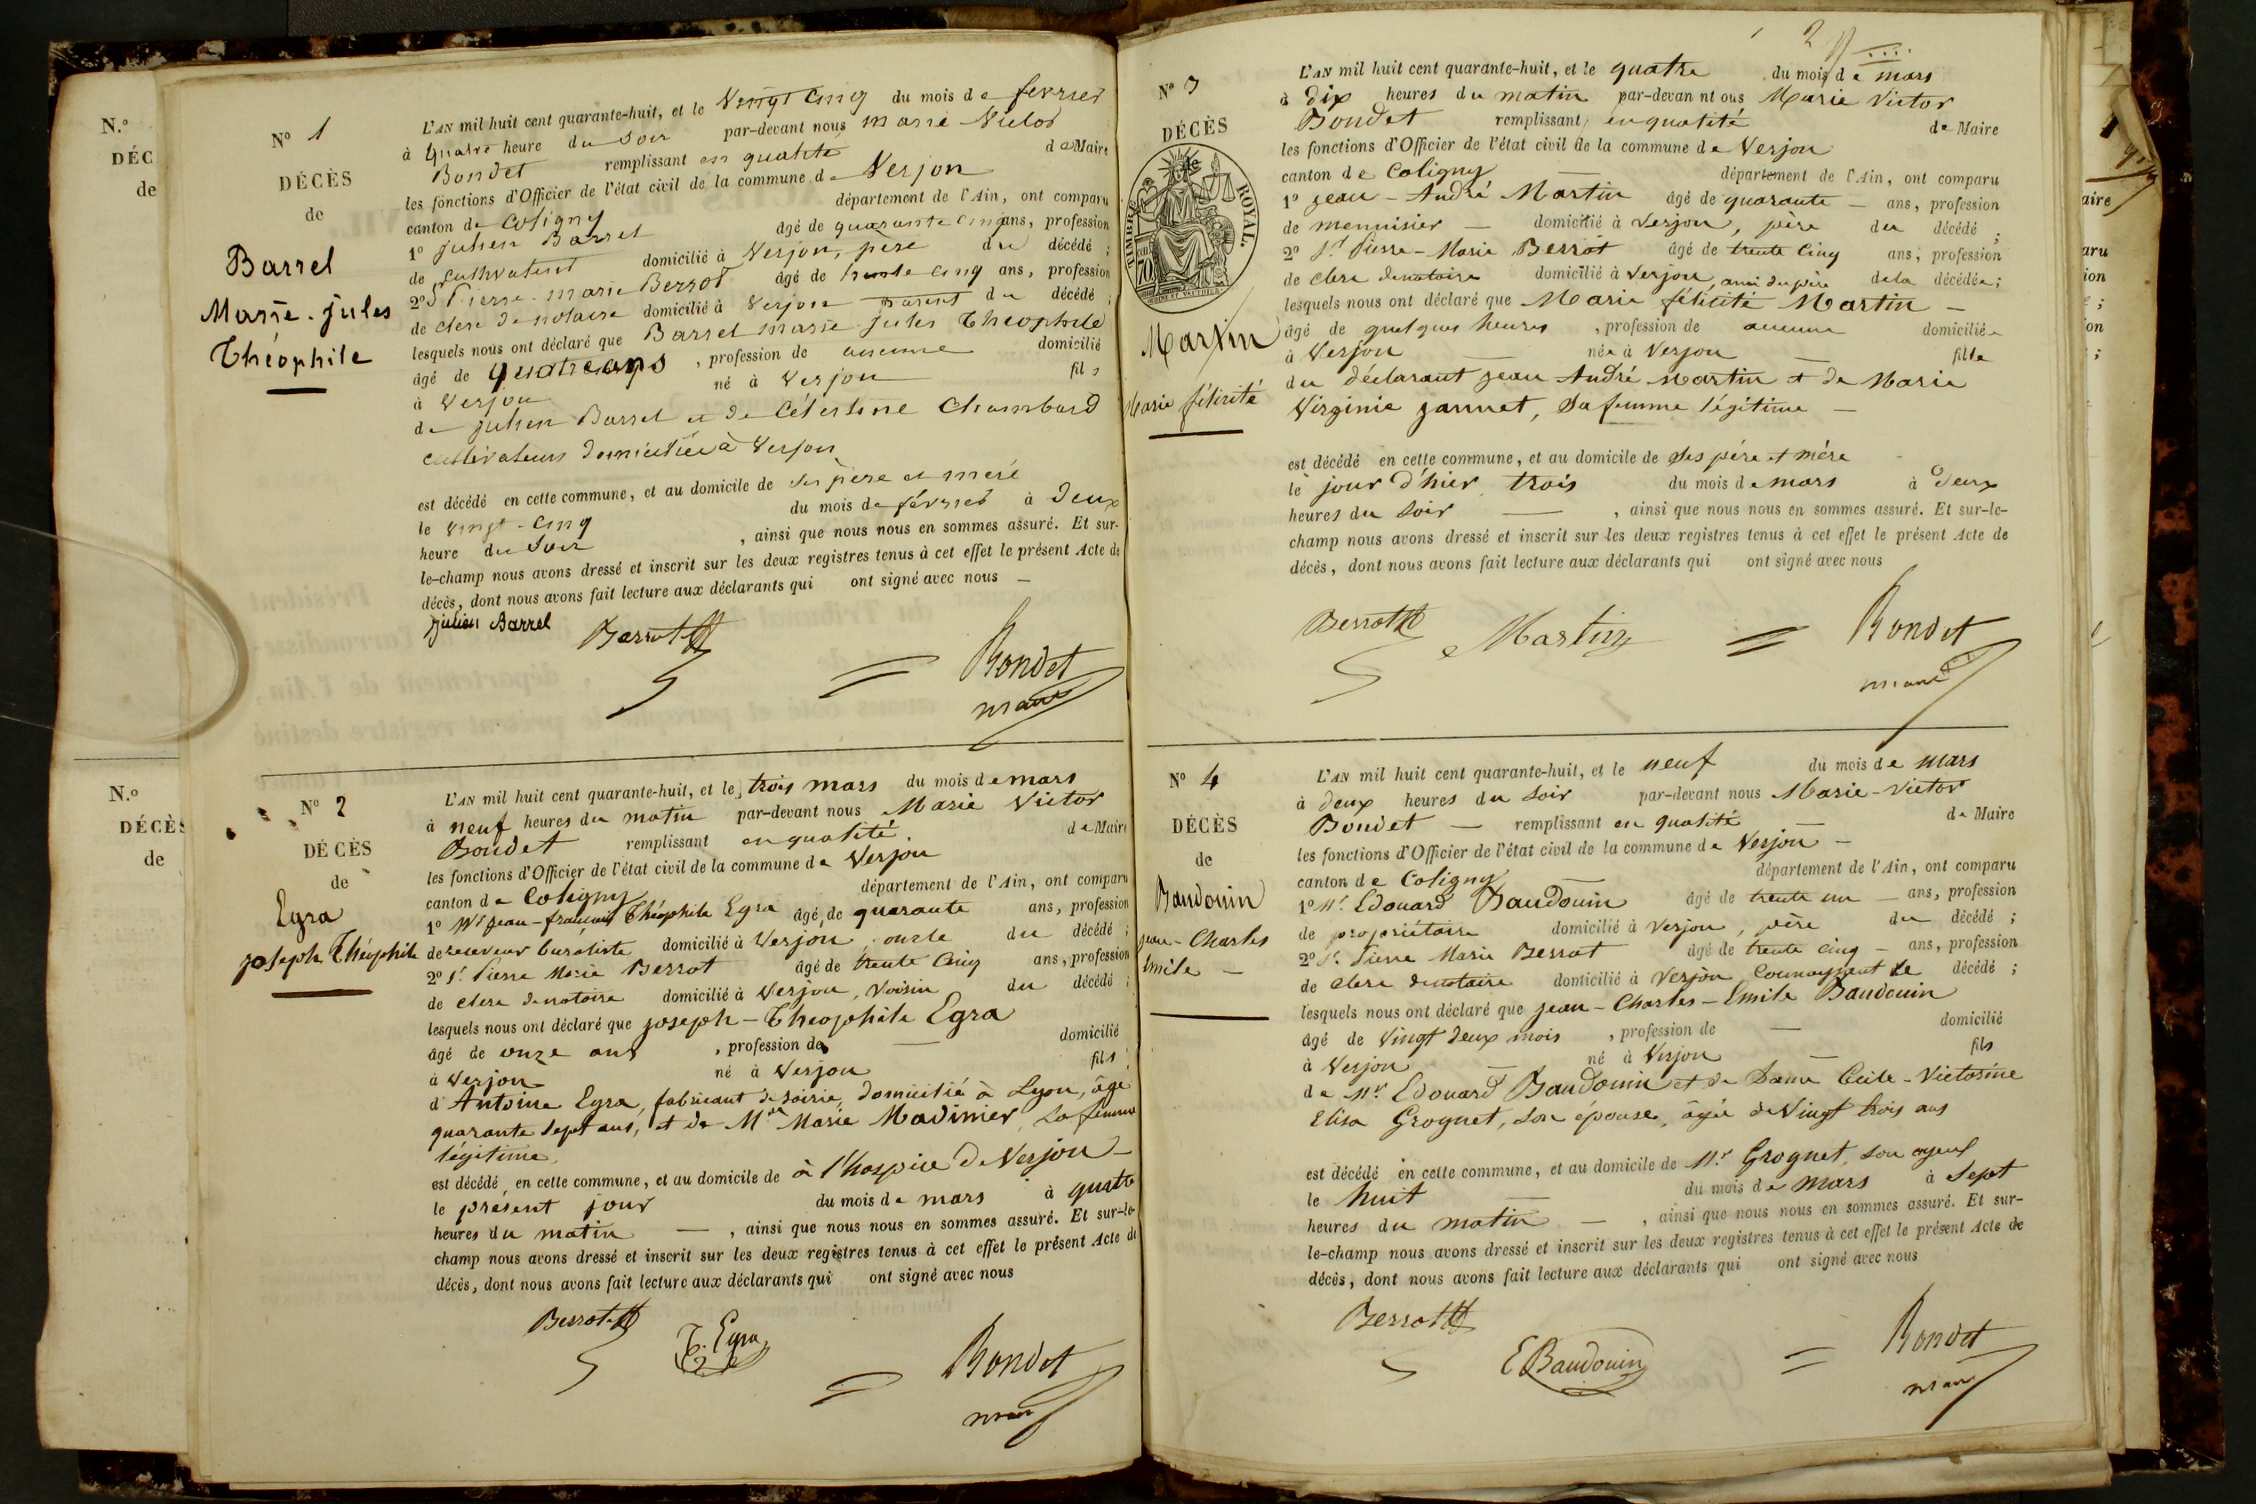 N.o
DÉC
de
N.o
DÉCÈS
de
No 1
DÉCÈS
de
Barrel
Marie-jules
Théophile
L'AN mil huit cent quarante-huit, et le Vingt Cinq du mois de fevrier
à quatre heure du Soir par-devant nous marie Victor
Bondet remplissant en qualité de Maire
les fonctions d'Officier de l'état civil de la commune de Verjon
canton de Coligny département de l'Ain, ont comparu
1o julien Barrel âgé de quarante cinq ans, profession
de Cultivateur domicilié à Verjon, père du décédé ;
2o Sr Pierre-marie Berrot âgé de trente cinq ans, profession
de clerc de notaire domicilié à Verjon parent du décédé ;
lesquels nous ont déclaré que Barrel marie jules Théophile
âgé de quatre ans , profession de aucune domicilié
à Verjon né à Verjon fils
de julien Barrel et de Célestine Chambard
cultivateurs domiciliés à Verjon
est décédé en cette commune, et au domicile de ses père et mère
le vingt-cinq du mois de février à deux
heure du Soir , ainsi que nous nous en sommes assuré. Et sur-
le-champ nous avons dressé et inscrit sur les deux registres tenus à cet effet le présent Acte de
décès, dont nous avons fait lecture aux déclarants qui ont signé avec nous —
julien Barrel Berrot Bondet
maire
No 2
DÉCÈS
de
Egra
joseph Théophile
L'AN mil huit cent quarante-huit, et le trois mars du mois de mars
à neuf heures du matin par-devant nous Marie Victor
Bondet remplissant en qualité de Maire
les fonctions d'Officier de l'état civil de la commune de Verjon
canton de Coligny département de l'Ain, ont comparu
1o Mr jean-françois Théophile Egra âgé de quarante ans, profession
de receveur buraliste domicilié à Verjon, oncle du décédé ;
2o Sr Pierre Marie Berrot âgé de trente Cinq ans, profession
de clerc de notaire domicilié à Verjon, voisin du décédé ;
lesquels nous ont déclaré que joseph-Théophile Egra
âgé de onze ans , profession de — domicilié
à Verjon né à Verjon fils
d'Antoine Egra, fabricant de soirie, domicilié à Lyon, âgé
quarante sept ans, et de Mme Marie Madinier, sa femme
légitime.
est décédé en cette commune, et au domicile de à l'hospice de Verjon —
le présent jour du mois de mars à quatre
heures du matin — , ainsi que nous nous en sommes assuré. Et sur-le-
champ nous avons dressé et inscrit sur les deux registres tenus à cet effet le présent Acte de
décès, dont nous avons fait lecture aux déclarants qui ont signé avec nous
Berrot Egra Bondet
maire
2
No 3
DÉCÈS
de
TIMBRE ROYAL.
70
Martin
Marie félicité
L'AN mil huit cent quarante-huit, et le quatre du mois de mars
à dix heures du matin par-devan nt ous Marie Victor
Bondet remplissant en qualité de Maire
les fonctions d'Officier de l'état civil de la commune de Verjon
canton de Coligny département de l'Ain, ont comparu
1o jean-André Martin âgé de quarante — ans, profession
de menuisier — domicilié à Verjon, père du décédé ;
2o Sr Pierre-Marie Berrot âgé de trente Cinq ans, profession
de clerc de notaire domicilié à Verjon, ami du père de la décédée ;
lesquels nous ont déclaré que Marie félicité Martin —
âgé de quelques heures , profession de aucune domiciliée
à Verjon — née à Verjon — fille
du déclarant jean André Martin et de Marie
Virginie jannet, sa femme légitime —
est décédé en cette commune, et au domicile de ses père et mère
le jour d'hier trois du mois de mars à Deux
heures du Soir — , ainsi que nous nous en sommes assuré. Et sur-le-
champ nous avons dressé et inscrit sur les deux registres tenus à cet effet le présent Acte de
décès, dont nous avons fait lecture aux déclarants qui ont signé avec nous
Berrot Martin Bondet
maire
No 4
DÉCÈS
de
Baudouin
jean-Charles
Emile —
L'AN mil huit cent quarante-huit, et le neuf du mois de mars
à deux heures du Soir par-devant nous Marie-Victor
Bondet — remplissant en qualité — de Maire
les fonctions d'Officier de l'état civil de la commune de Verjon —
canton de Coligny département de l'Ain, ont comparu
1o Mr Edouard Baudouin âgé de trente un — ans, profession
de propriétaire domicilié à Verjon, père du décédé ;
2o Sr Pierre Marie Berrot âgé de trente cinq — ans, profession
de clerc de notaire domicilié à Verjon Connaissant le décédé ;
lesquels nous ont déclaré que jean-Charles-Emile Baudouin
âgé de vingt deux mois , profession de — domicilié
à Verjon — né à Verjon — fils
de Mr Edouard Baudouin et de Dame Cécile-Victorine
Elisa Grognet, son épouse, âgée de Vingt trois ans
est décédé en cette commune, et au domicile de Mr Grognet, son ayeul
le huit du mois de mars à Sept
heures du matin — , ainsi que nous nous en sommes assuré. Et sur-
le-champ nous avons dressé et inscrit sur les deux registres tenus à cet effet le présent Acte de
décès, dont nous avons fait lecture aux déclarants qui ont signé avec nous
Berrot E Baudouin Bondet
maire
aire
aru
ion